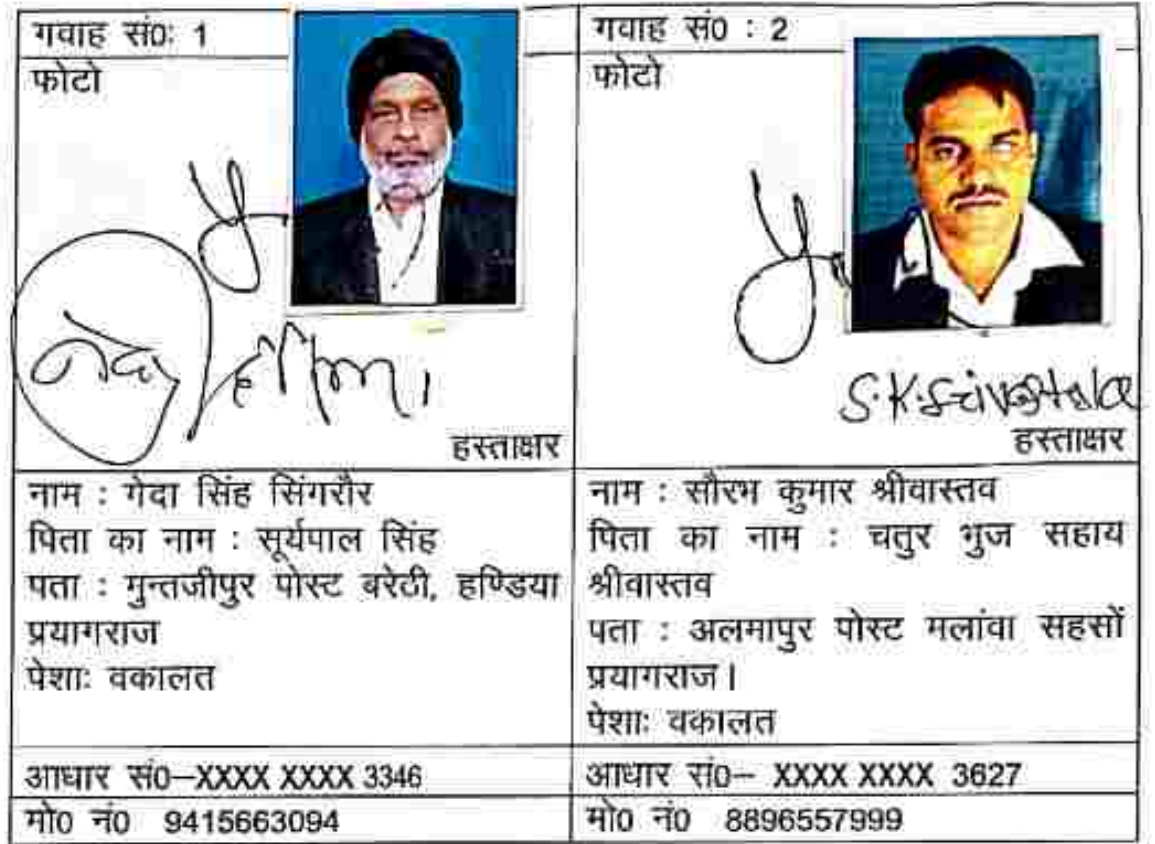 गवाह सं0: 1
फोटो
हस्ताक्षर
नाम : गेदा सिंह सिंगरौर
पिता का नाम : सूर्यपाल सिंह
पता : मुन्तजीपुर पोस्ट बरेठी, हण्डिया
प्रयागराज
पेशाः वकालत
आधार सं0–XXXX XXXX 3346
मो0 नं0 9415663094
गवाह सं0 : 2
फोटो
S.K.Srivastava
हस्ताक्षर
नाम : सौरभ कुमार श्रीवास्तव
पिता का नाम : चतुर भुज सहाय
श्रीवास्तव
पता : अलमापुर पोस्ट मलांवा सहसों
प्रयागराज।
पेशाः वकालत
आधार सं0– XXXX XXXX 3627
मो0 नं0 8896557999